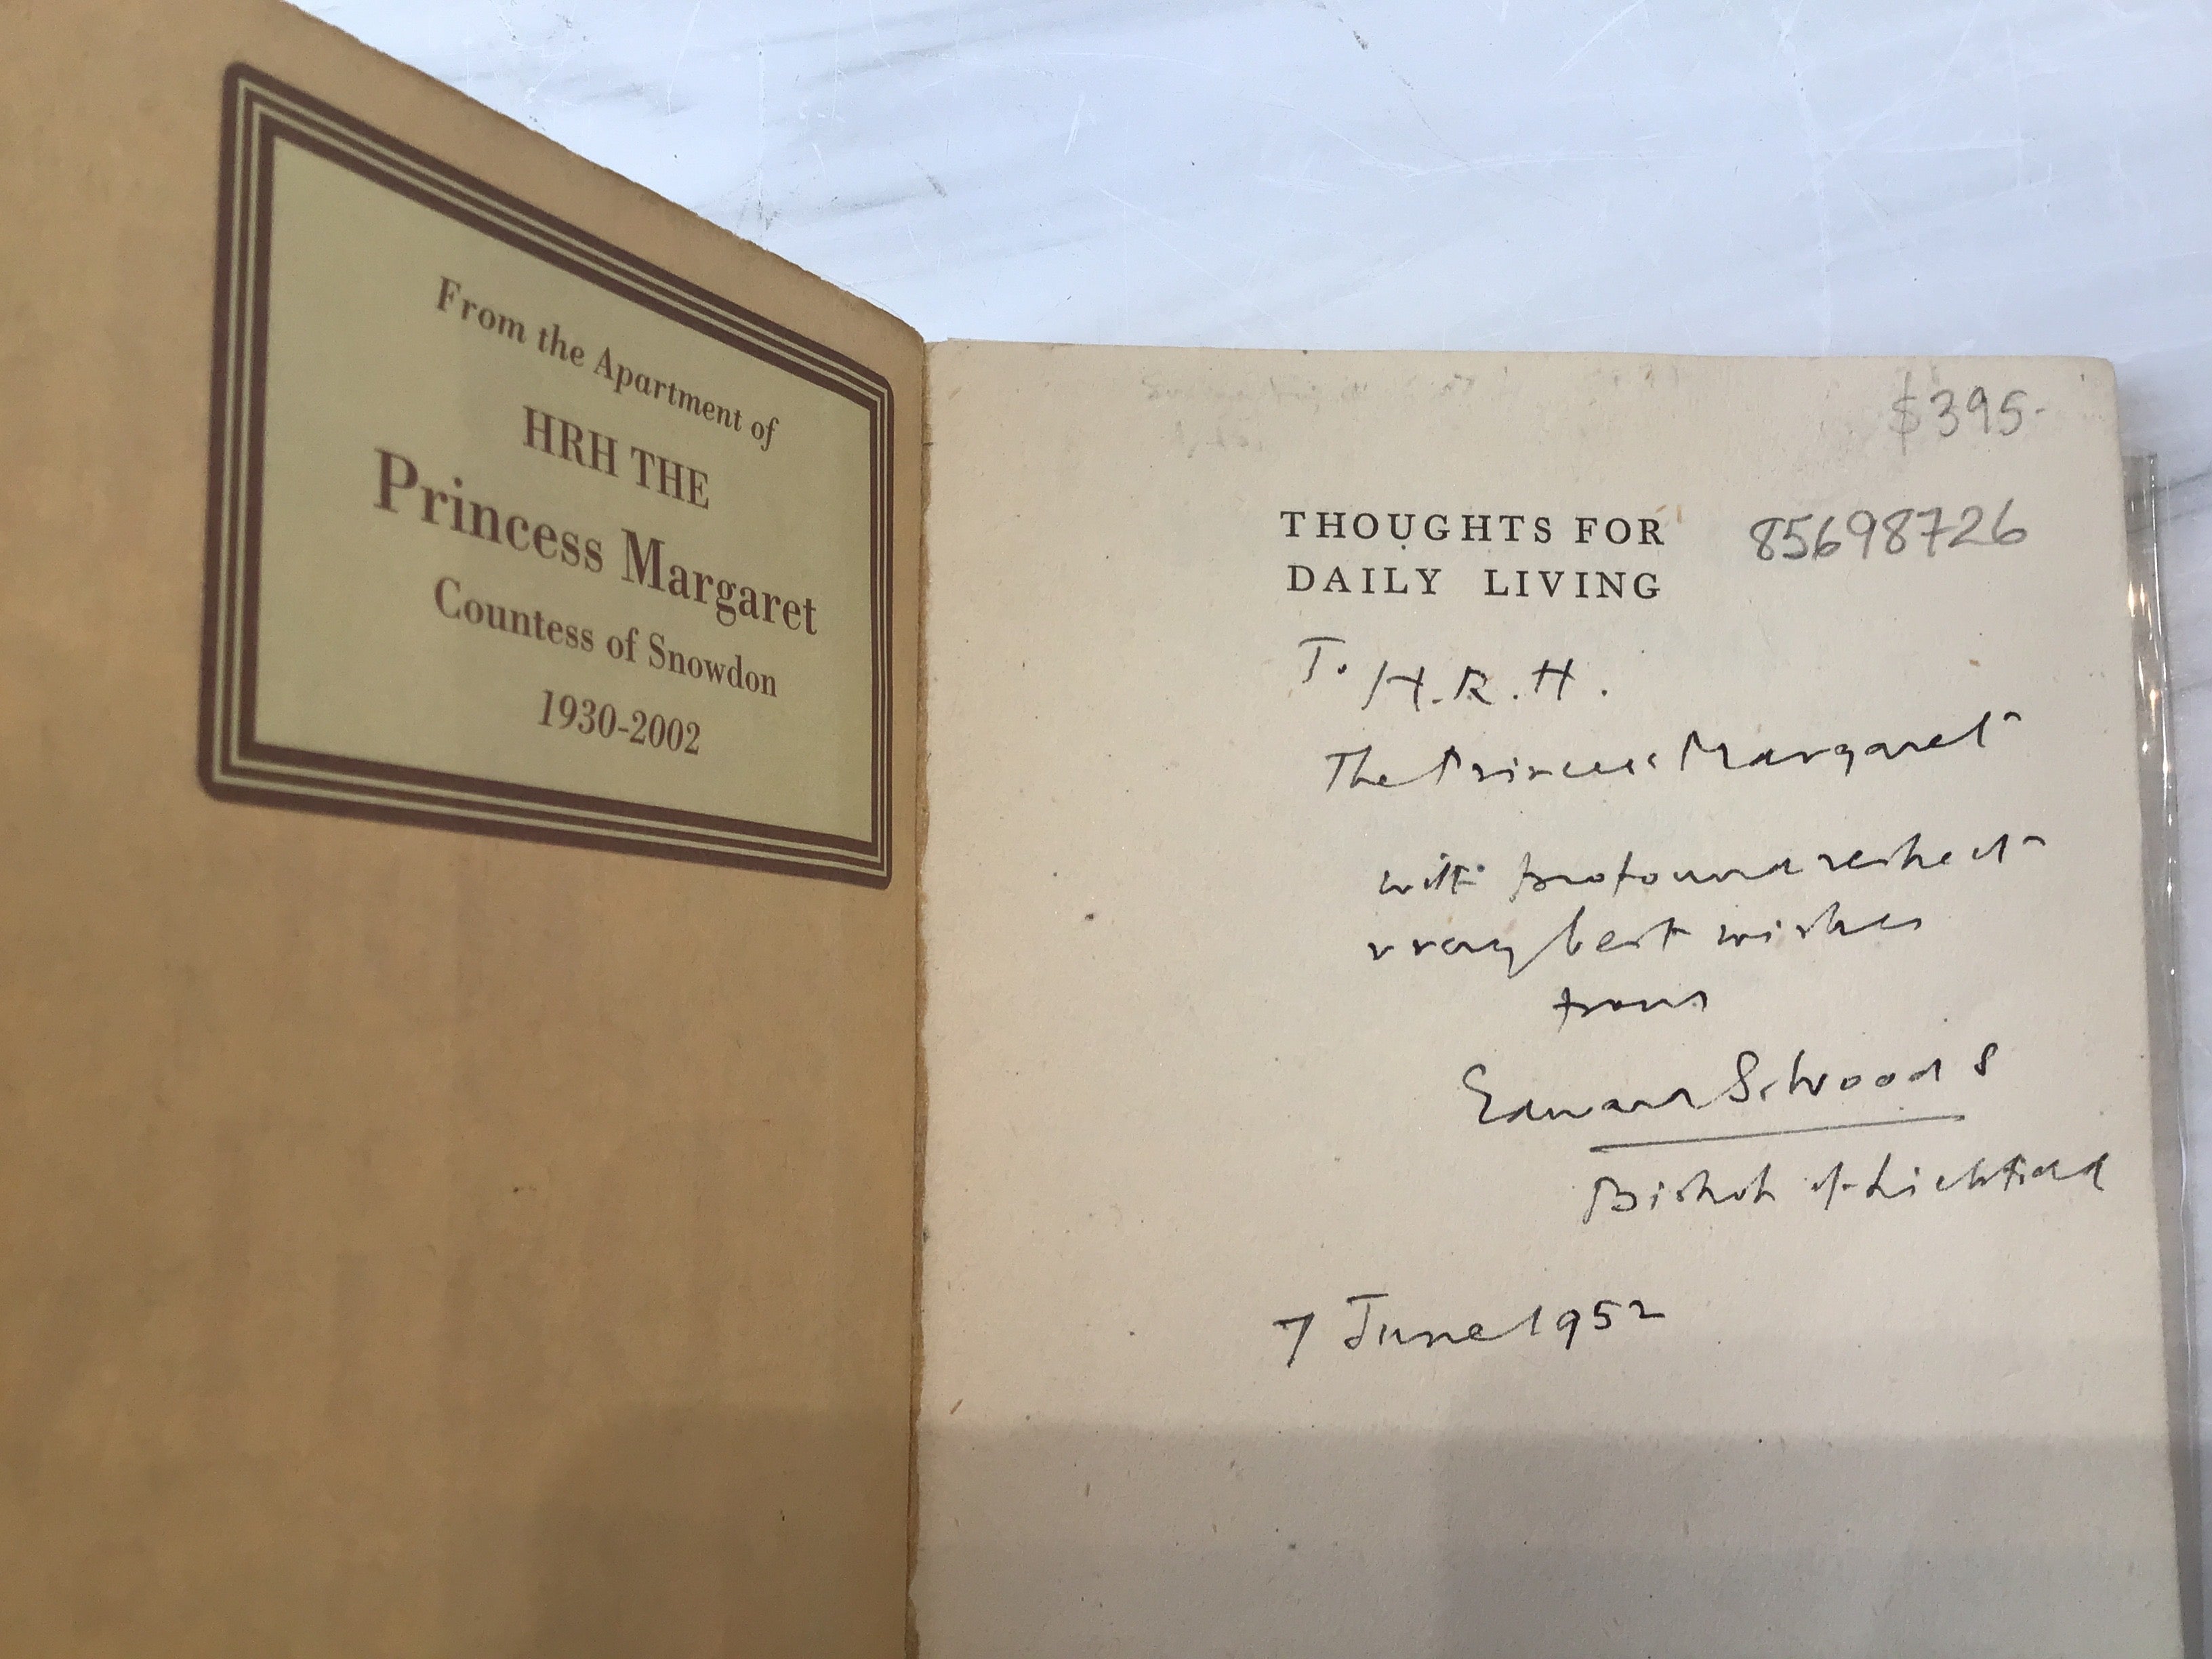 From the Apartment of
HRH THE
Princess Margaret
Countess of Snowdon
1930-2002
$395-
THOUGHTS FOR
DAILY LIVING
85698726
To H.R.H.
The Princess Margaret
with profound respect
& my best wishes
from
Edward S. Woods
Bishop of Lichfield
7 June 1952